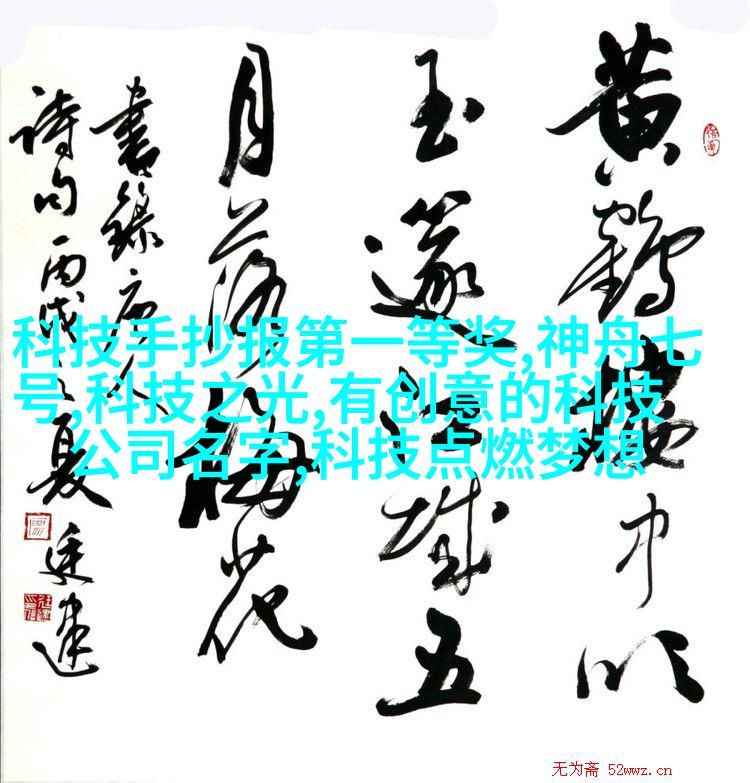 黄鹤楼中吹
玉篴江城五
月落梅花
書錄唐人
诗句丙戌之夏
科技手抄报第一等奖,神舟七
号,科技之光,有创意的科技
公司名字,科技点燃梦想
无为斋 52wwz.cn